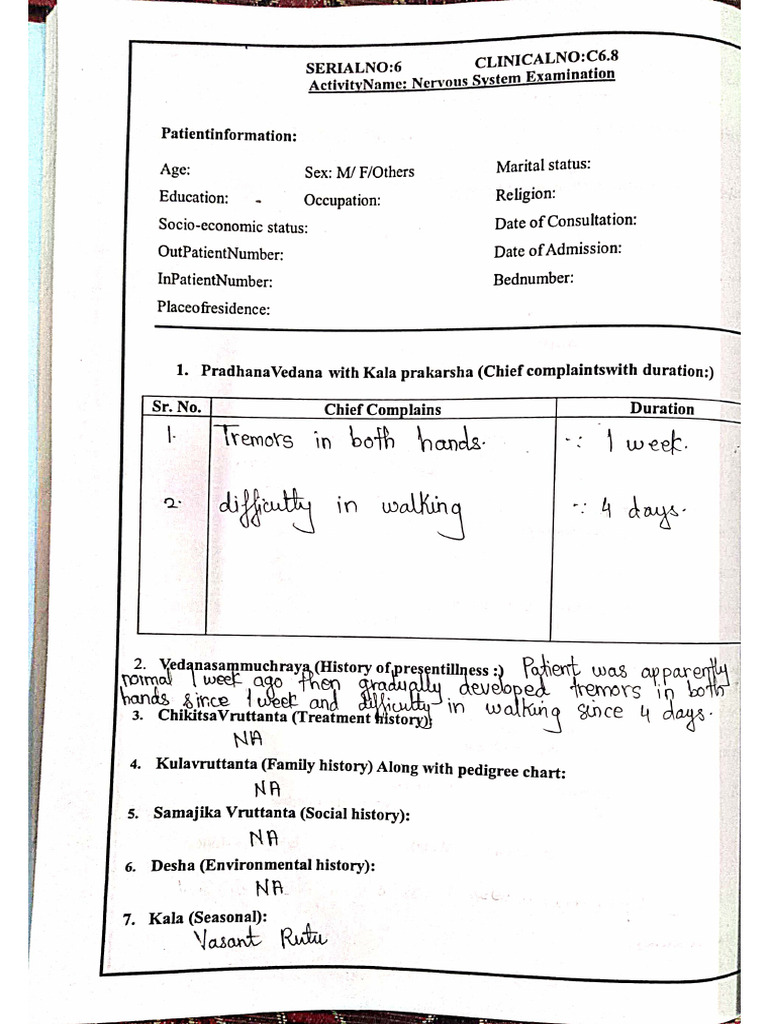 SERIALNO:6 CLINICALNO:C6.8
ActivityName: Nervous System Examination
Patientinformation:
Age: Sex: M/ F/Others Marital status:
Education: - Occupation: Religion:
Socio-economic status: Date of Consultation:
OutPatientNumber: Date of Admission:
InPatientNumber: Bednumber:
Placeofresidence:
1. PradhanaVedana with Kala prakarsha (Chief complaintswith duration:)
Sr. No. Chief Complains Duration
1. Tremors in both hands. -: 1 week.
2. difficulty in walking -: 4 days.
2. Vedanasammuchraya (History of presentillness :) Patient was apparently
normal 1 week ago then gradually developed tremors in both
hands since 1 week and difficulty in walking since 4 days.
3. ChikitsaVruttanta (Treatment history):
NA
4. Kulavruttanta (Family history) Along with pedigree chart:
NA
5. Samajika Vruttanta (Social history):
NA
6. Desha (Environmental history):
NA
7. Kala (Seasonal):
Vasant Rutu